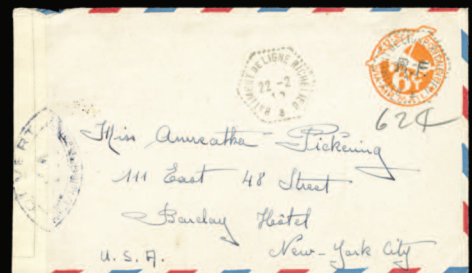 BATIMENT DE LIGNE RICHELIEU
22-2
R.F.
6¢
62¢
OUVERT
Miss Pickering
111 East 48 Street
Barclay Hôtel
U.S.A. New-York City